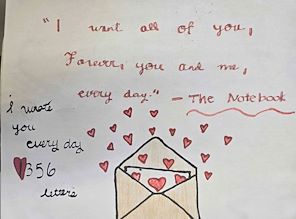 "I want all of you,
Forever, you and me,
every day." - The Notebook
I wrote
you
every day
356
letters